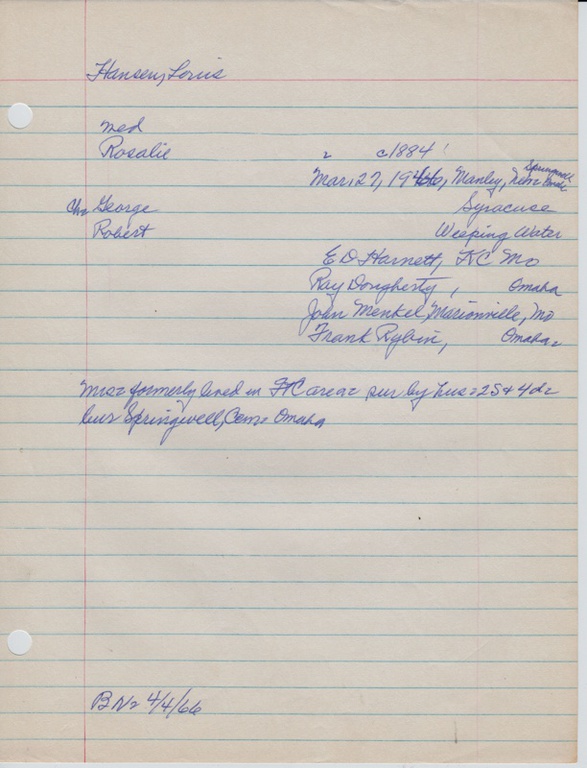 Hansen, Louis
med
Rosalie = c1884
Mar. 27, 1966, Manley, Neb= Springwell
Chn George Syracuse
Robert Weeping Water
E D Harnett, KC Mo
Ray Dougherty, Omaha
John Menkel, Marionville, Mo
Frank Rybin, Omaha=
Mrs= formerly lived in area= sur by hus= 2S & 4d=
bur Springwell, Cem= Omaha
BN= 4/4/66